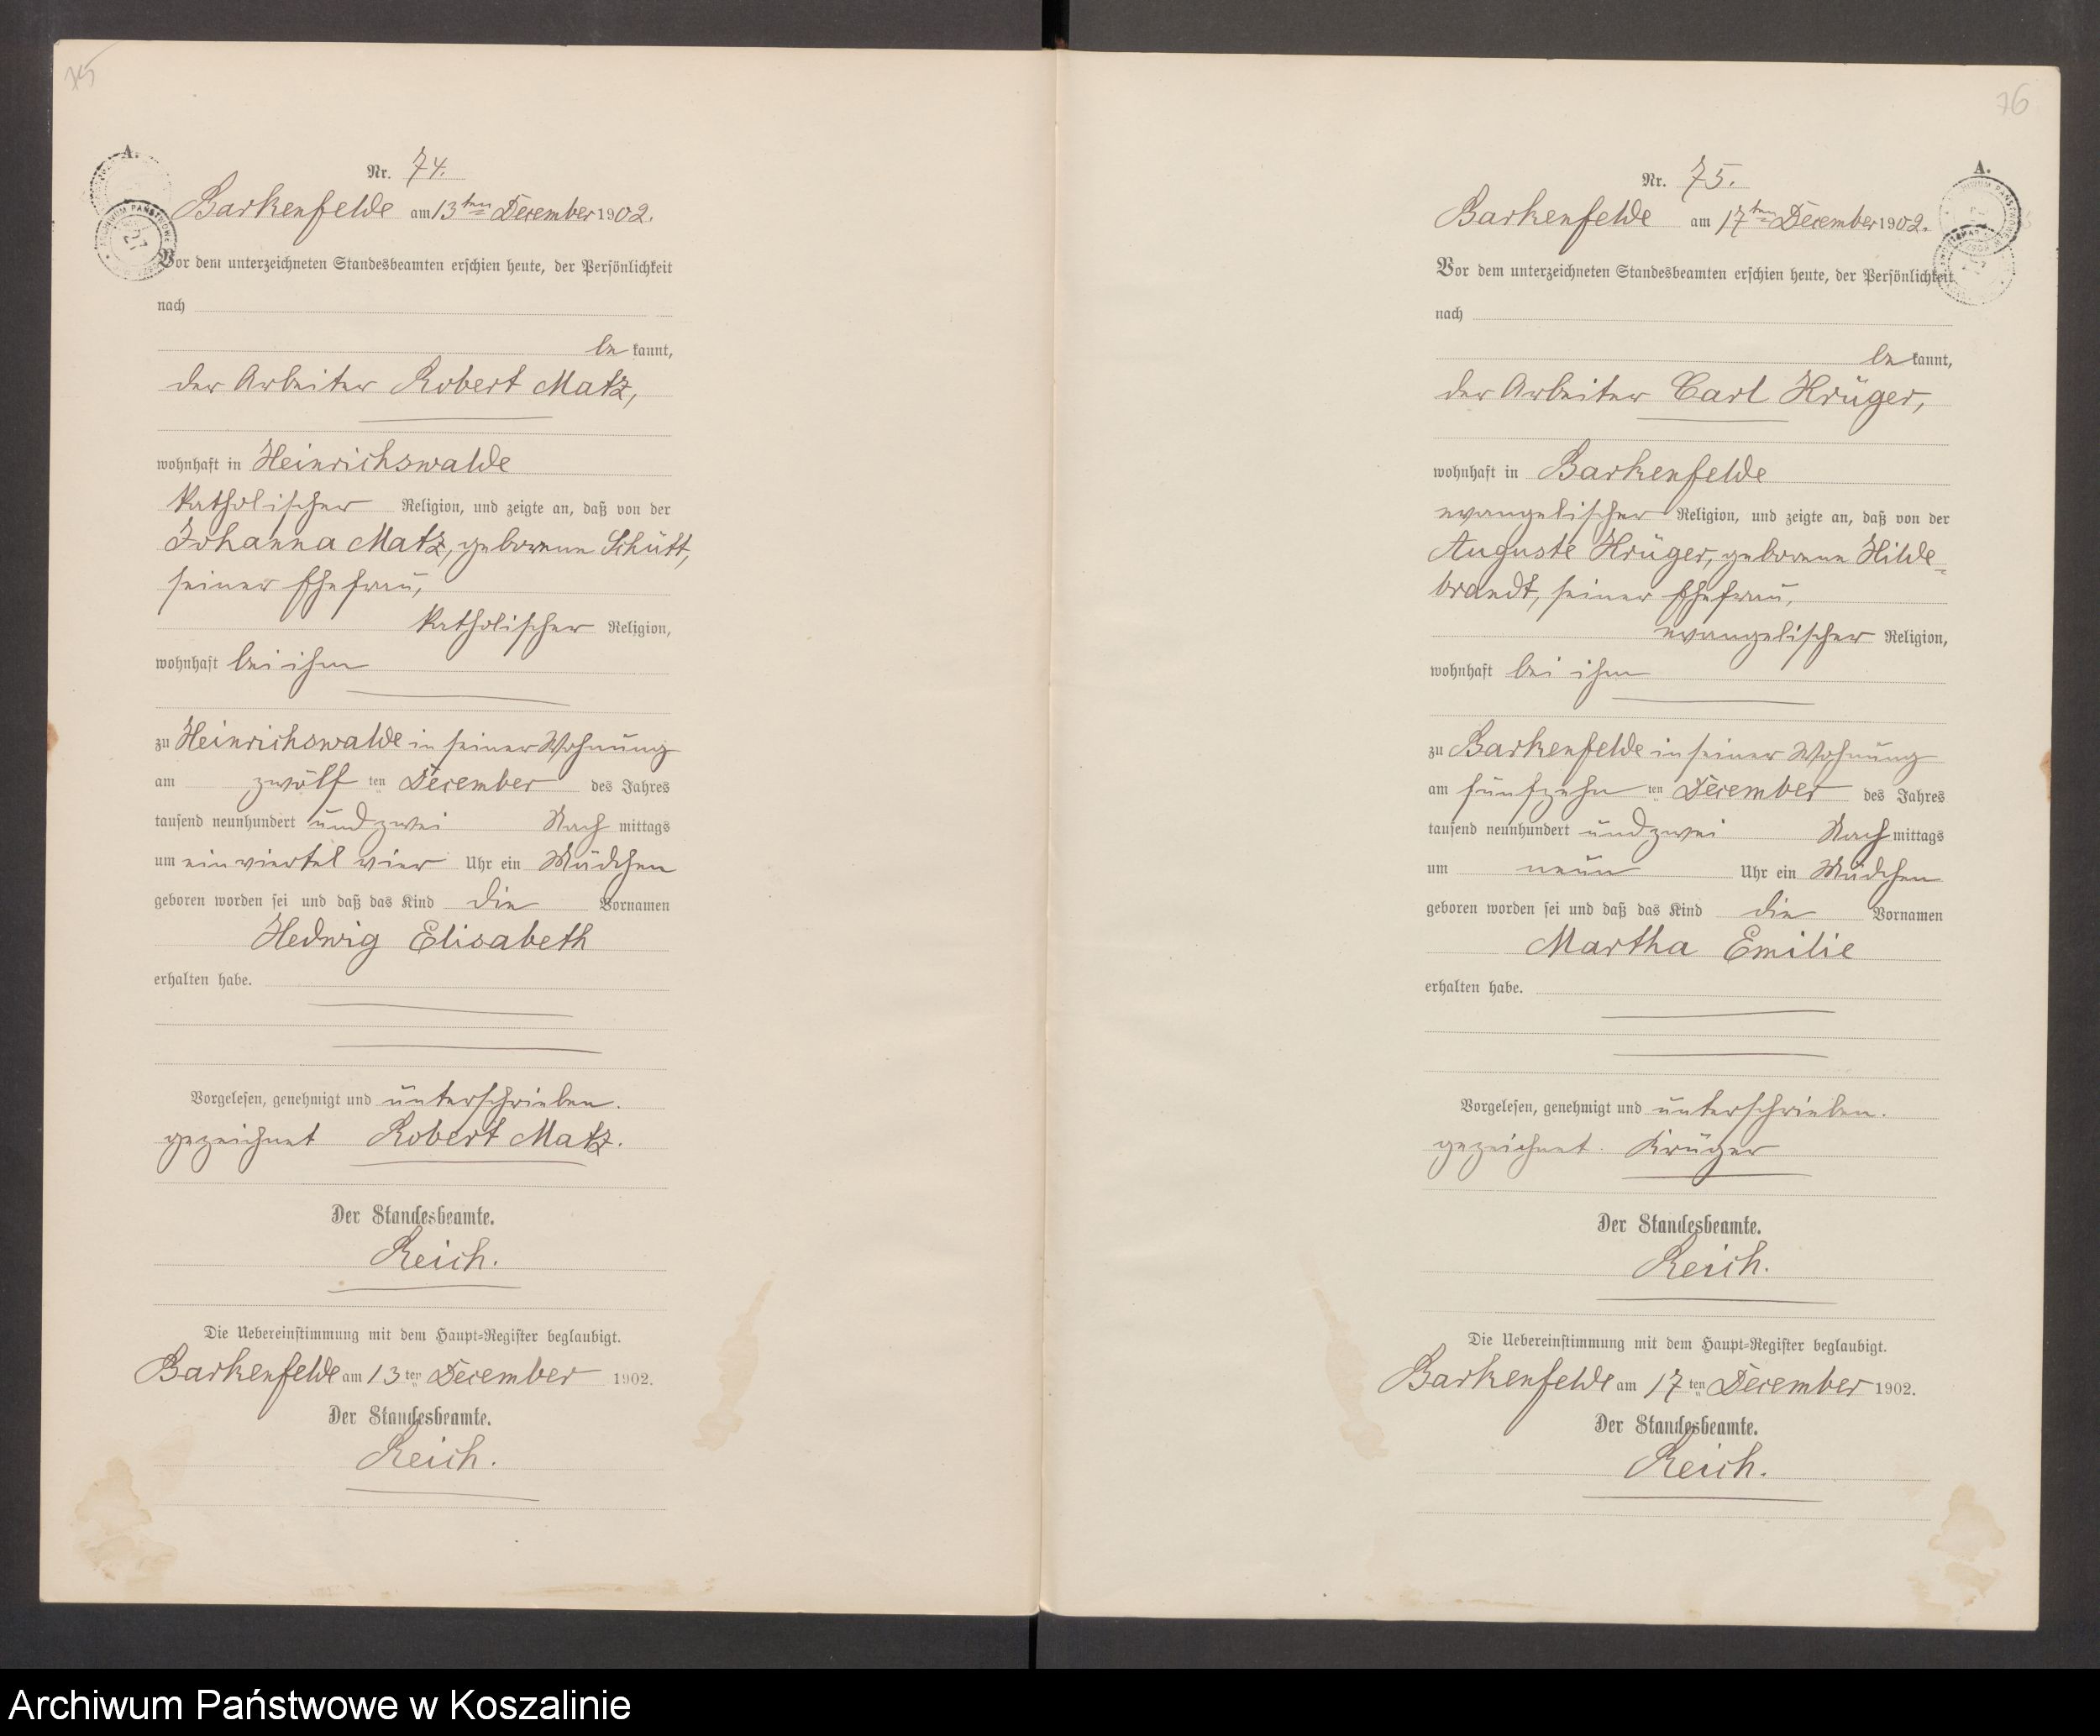 75
A.
Nr. 74.
Barkenfelde am 13ten December 1902.
Vor dem unterzeichneten Standesbeamten erschien heute, der Persönlichkeit
nach
be kannt,
der Arbeiter Robert Matz,
wohnhaft in Heinrichswalde
katholischer Religion, und zeigte an, daß von der
Johanna Matz, geborene Schütt,
seiner Ehefrau,
katholischer Religion,
wohnhaft bei ihm
zu Heinrichswalde in seiner Wohnung
am zwölf ten December des Jahres
tausend neunhundert und zwei Nach mittags
um ein viertel vier Uhr ein Mädchen
geboren worden sei und daß das Kind die Vornamen
Hedwig Elisabeth
erhalten habe.
Vorgelesen, genehmigt und unterschrieben.
gezeichnet Robert Matz.
Der Standesbeamte.
Reich.
Die Uebereinstimmung mit dem Haupt-Register beglaubigt.
Barkenfelde am 13 ten December 1902.
Der Standesbeamte.
Reich.
76
A.
Nr. 75.
Barkenfelde am 17ten December 1902.
Vor dem unterzeichneten Standesbeamten erschien heute, der Persönlichkeit
nach
be kannt,
der Arbeiter Carl Krüger,
wohnhaft in Barkenfelde
evangelischer Religion, und zeigte an, daß von der
Auguste Krüger, geborene Hilde-
brandt, seiner Ehefrau,
evangelischer Religion,
wohnhaft bei ihm
zu Barkenfelde in seiner Wohnung
am fünfzehn ten December des Jahres
tausend neunhundert und zwei Nach mittags
um neun Uhr ein Mädchen
geboren worden sei und daß das Kind die Vornamen
Martha Emilie
erhalten habe.
Vorgelesen, genehmigt und unterschrieben.
gezeichnet. Krüger
Der Standesbeamte.
Reich.
Die Uebereinstimmung mit dem Haupt-Register beglaubigt.
Barkenfelde am 17 ten December 1902.
Der Standesbeamte.
Reich.
Archiwum Państwowe w Koszalinie